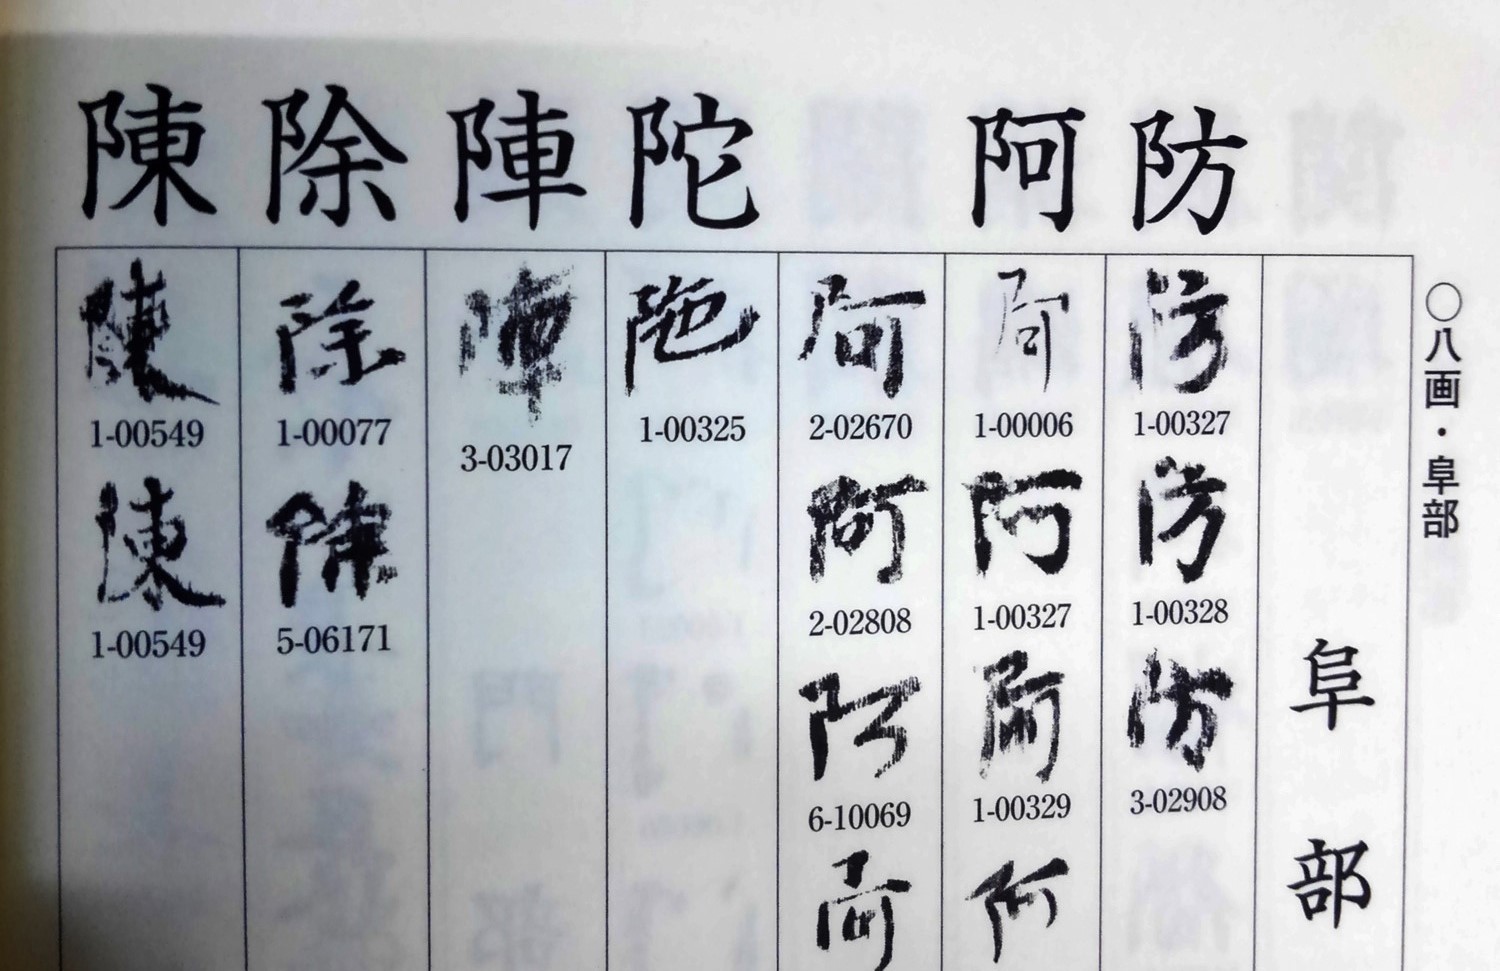 ○八画・阜部
阜部
防
防
1-00327
防
1-00328
防
3-02908
阿
阿
1-00006
阿
1-00327
阿
1-00329
阿
阿
2-02670
阿
2-02808
阿
6-10069
阿
陀
陀
1-00325
陣
陣
3-03017
除
除
1-00077
除
5-06171
陳
陳
1-00549
陳
1-00549